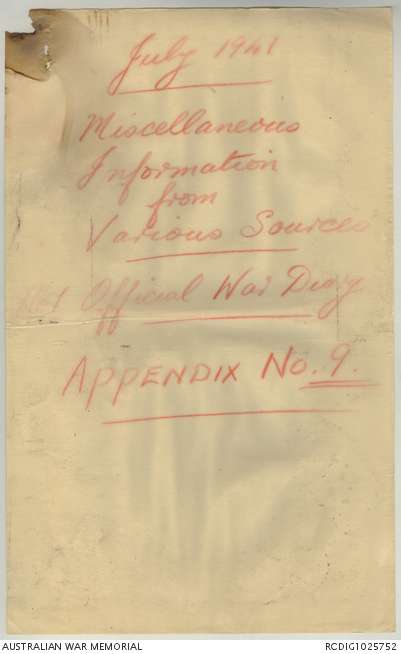 July 1941
Miscellaneous
Information
from
Various Sources
Official War Diary
APPENDIX No. 9.
AUSTRALIAN WAR MEMORIAL
RCDIG1025752